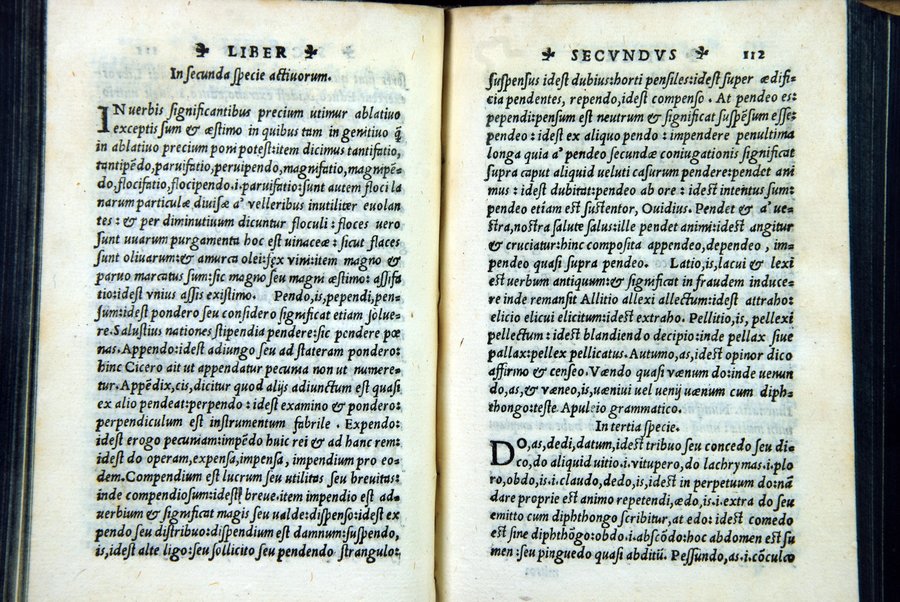 LIBER
In secunda specie actiuorum.
IN uerbis significantibus precium utimur ablatiuo
exceptis sum & æstimo in quibus tam in genitiuo q̃
in ablatiuo precium poni potest: item dicimus tantifatio,
tantipēdo, paruifatio, peruipendo, magnifatio, magnipē-
do, flocifatio, flocipendo .i. paruifatio: sunt autem floci la
narum particulæ diuisæ a' velleribus inutiliter euolan
tes: & per diminutium dicuntur floculi: floces uero
sunt uuarum purgamenta hoc est uinaceæ: sicut flaces
sunt oliuarum: & amurca olei: fęx vini: item magno &
paruo marcatus sum: sic magno seu magni æstimo: assifa
tio: idest vnius assis existimo. Pendo, is, pependi, pen-
sum: idest pondero seu considero significat etiam solue-
re. Salustius nationes stipendia pendere: sic pendere pœ
nas. Appendo: idest adiungo seu ad stateram pondero:
hinc Cicero ait ut appendatur pecunia non ut numere-
tur. Appēdix, cis, dicitur quod alijs adiunctum est quasi
ex alio pendeat: perpendo: idest examino & pondero:
perpendiculum est instrumentum fabrile. Expendo:
idest erogo pecuniam: impēdo huic rei & ad hanc rem:
idest do operam, expensa, impensa, impendium pro eo-
dem. Compendium est lucrum seu utilitas seu breuitas:
inde compendiosum: idest breue. item impendio est ad-
uerbium & significat magis seu ualde: dispenso: idest ex
pendo seu distribuo: dispendium est damnum: suspendo,
is, idest alte ligo: seu sollicito seu pendendo strangulo:
SECVNDVS 112
suspensus idest dubius: horti pensiles: idest super ædifi-
cia pendentes, rependo, idest compenso. At pendeo es:
pependi: pensum est neutrum & significat suspēsum esse:
pendeo: idest ex aliquo pendo: impendere penultima
longa quia a' pendeo secundæ coniugationis significat
supra caput aliquid ueluti casurum pendere: pendet ani
mus: idest dubitat: pendeo ab ore: idest intentus sum:
pendeo etiam est sustentor, Ouidius. Pendet & a' ue-
stra, nostra salute salus: ille pendet animi: idest angitur
& cruciatur: hinc composita appendeo, dependeo, im-
pendeo quasi supra pendeo. Latio, is, lacui & lexi
est uerbum antiquum: & significat in fraudem induce-
re inde remansit Allitio allexi allectum: idest attraho:
elicio elicui elicitum: idest extraho. Pellitio, is, pellexi
pellectum: idest blandiendo decipio: inde pellax siue
pallax: pellex pellicatus. Autumo, as, idest opinor dico
affirmo & censeo. Vændo quasi vænum do: inde uenun
do, as, & væneo, is, uæniui uel uenij uænum cum diph-
thongo: teste Apuleio grammatico.
In tertia specie.
DO, as, dedi, datum, idest tribuo seu concedo seu di-
co, do aliquid uitio .i. vitupero, do lachrymas .i. plo
ro, obdo, is .i. claudo, dedo, is, idest in perpetuum do: nā
dare proprie est animo repetendi, ædo, is .i. extra do seu
emitto cum diphthongo scribitur, at edo: idest comedo
est sine diphthōgo: obdo .i. abscōdo: hoc abdomen est su
men: seu pinguedo quasi abditū. Pessundo, as .i. cōculco